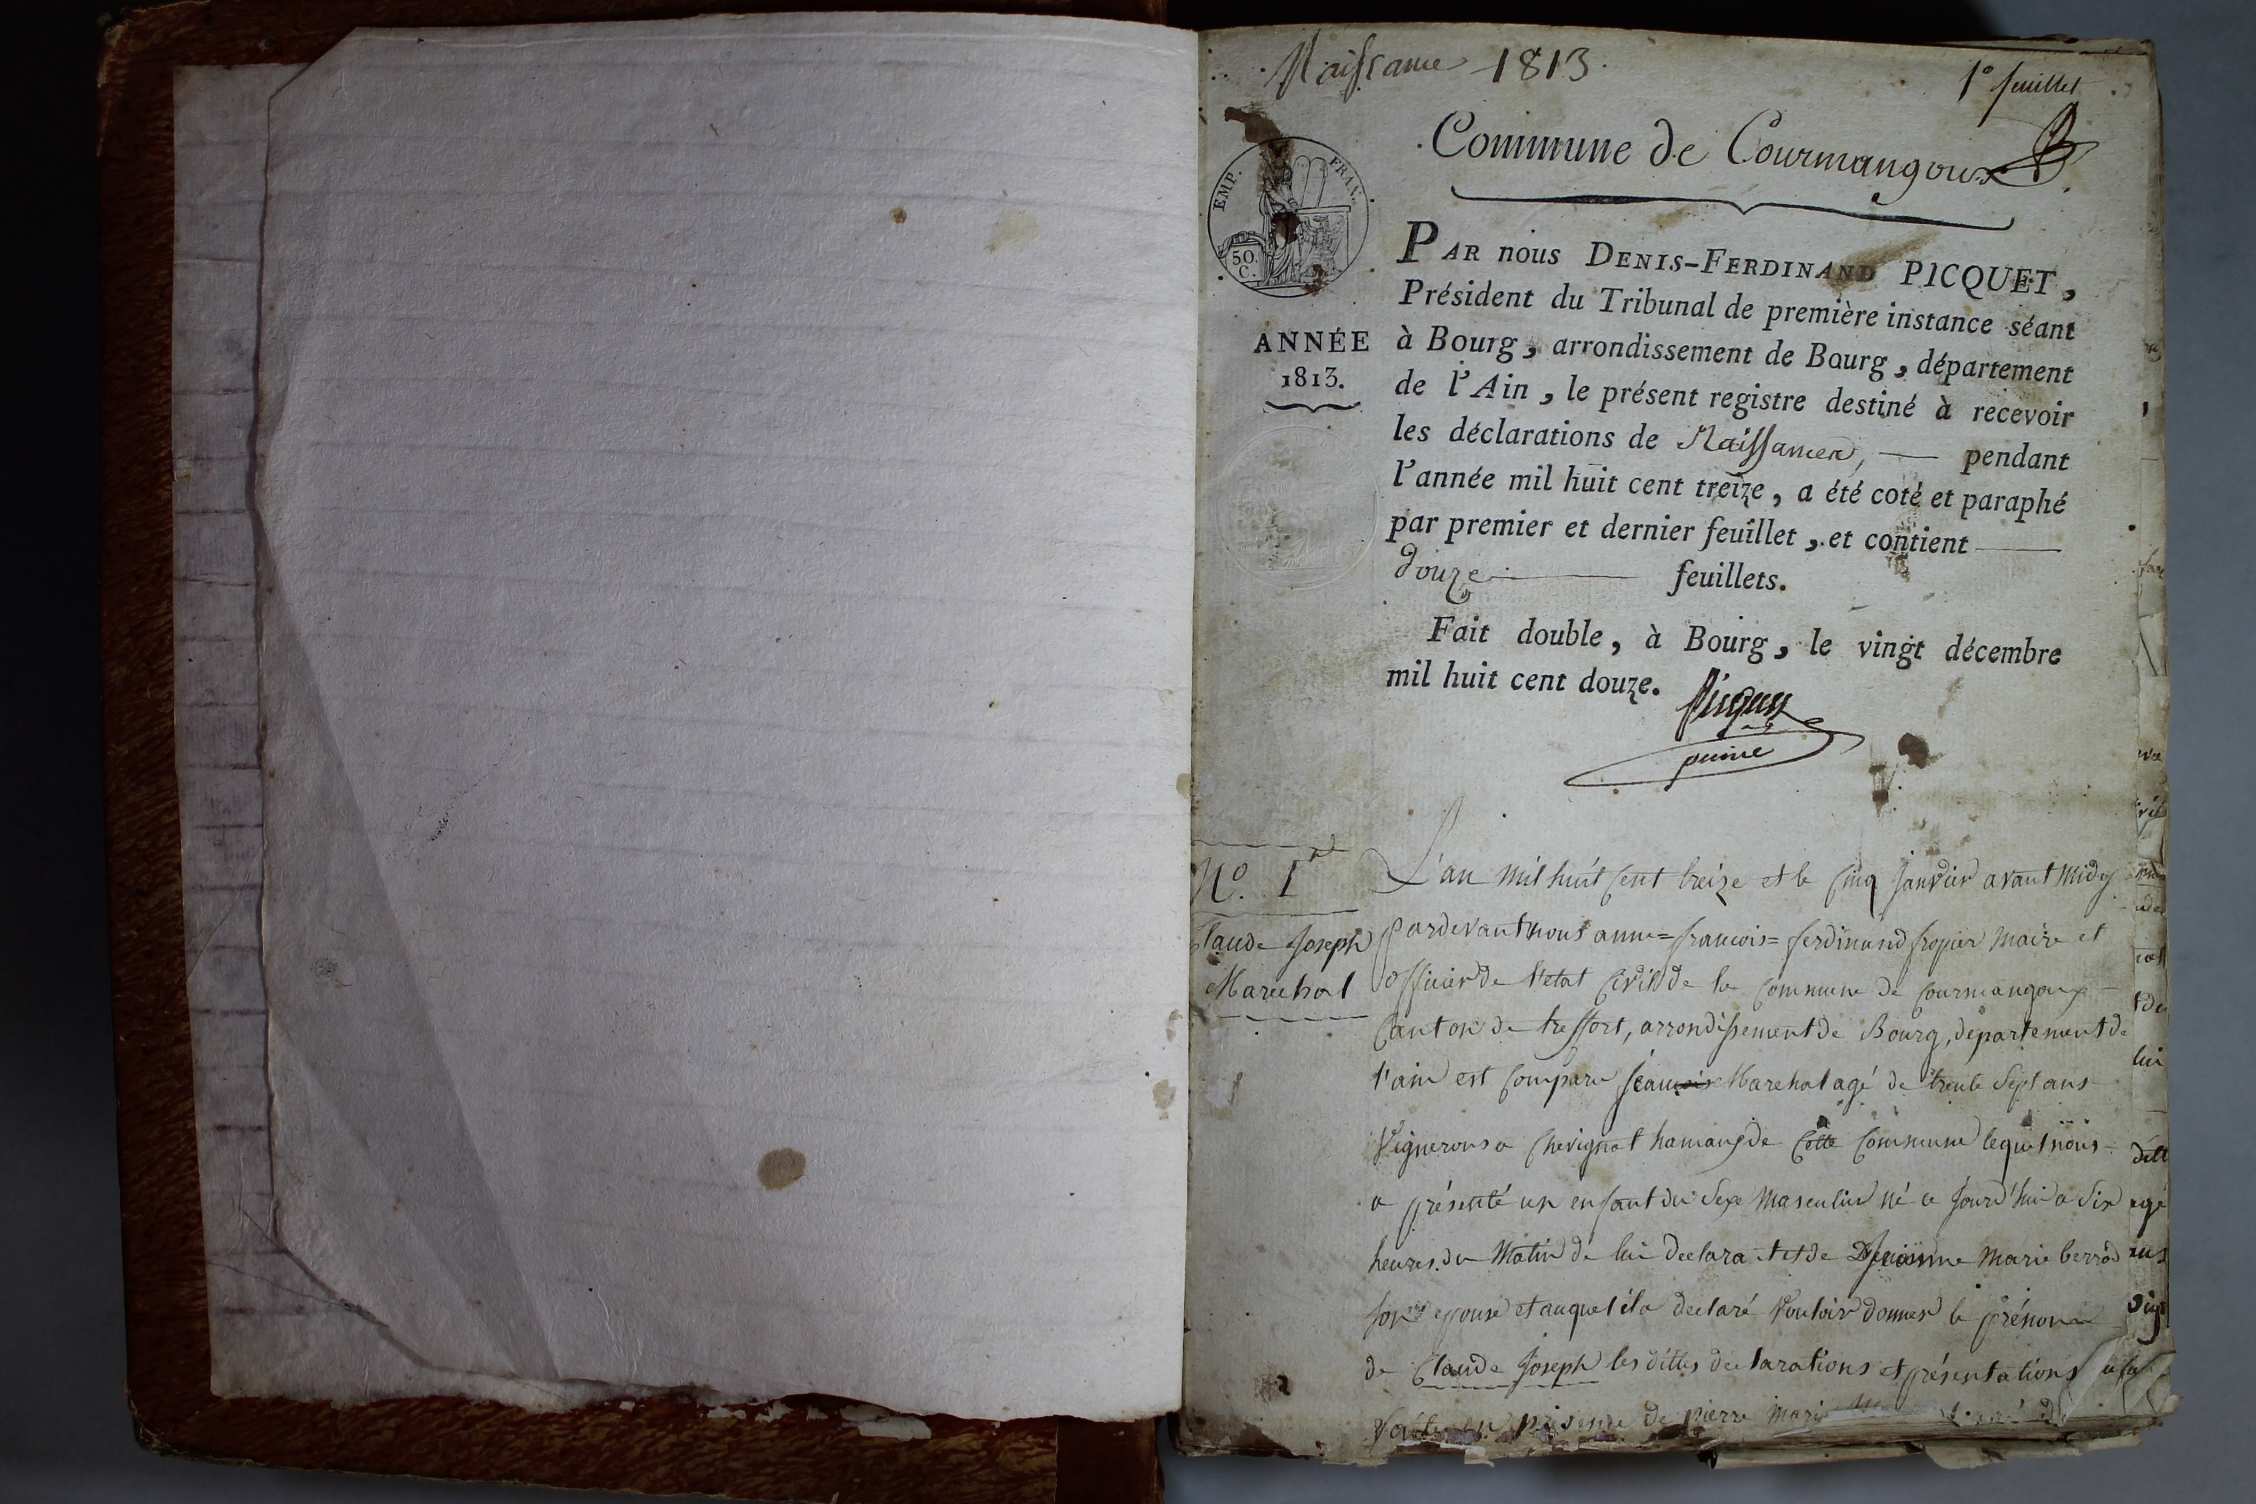 Naissance 1813.
1º feuillet
Commune de Courmangoux
EMP. FRAN.
50.
C.
ANNÉE
1813.
PAR nous DENIS-FERDINAND PICQUET,
Président du Tribunal de première instance séant
à Bourg, arrondissement de Bourg, département
de l'Ain, le présent registre destiné à recevoir
les déclarations de Naissances, — pendant
l'année mil huit cent treize, a été coté et paraphé
par premier et dernier feuillet, et contient —
douze — feuillets.
Fait double, à Bourg, le vingt décembre
mil huit cent douze.
Picquet
Nº. 1er
Claude Joseph
Marechal
L'an mil huit cent treize et le cinq janvier avant midy
pardevant nous anne=francois=ferdinand fropier maire et
officier de l'etat civil de la commune de Courmangoux
canton de treffort, arrondissement de Bourg, département de
l'ain est comparu Marehal agé de trente sept ans
vignerons a Chevignat hamaux de cette commune lequel nous
a présenté un enfant du sexe masculin né ce jourd'hui a six
heures du matin de lui declarant et de Jeanne marie berrod
son epouse et auquel il a declaré vouloir donner le prénom
de Claude Joseph les dittes declarations et présentations
presence de pierre marie